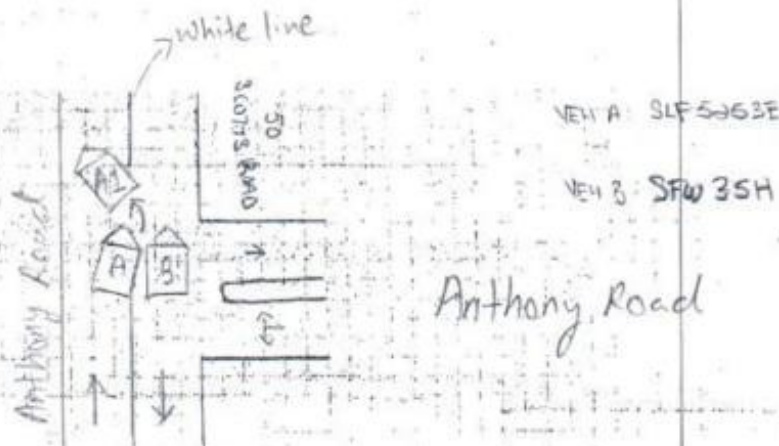 White line
50
SCOTTS ROAD
VEH A SLF5253E
VEH B SFW 35H
A1
A
B
Anthony Road
Anthony Road